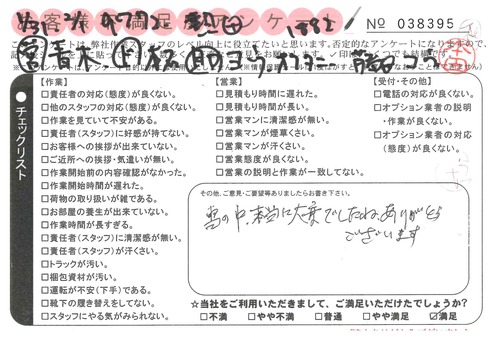 お客様満足アンケート
№ 038395
チェックリスト
【作業】
□責任者の対応(態度)が良くない。
□他のスタッフの対応(態度)が良くない。
□作業を見ていて不安がある。
□責任者(スタッフ)に好感が持てない。
□お客様への挨拶が出来ていない。
□ご近所への挨拶・気遣いが無い。
□作業開始前の内容確認がなかった。
□作業開始時間が遅れた。
□荷物の取り扱いが雑である。
□お部屋の養生が出来ていない。
□作業時間が長すぎる。
□責任者(スタッフ)に清潔感が無い。
□責任者(スタッフ)が汗くさい。
□トラックが汚い。
□梱包資材が汚い。
□運転が不安(下手)である。
□靴下の履き替えをしてない。
□スタッフにやる気がみられない。
【営業】
□見積もり時間に遅れた。
□見積もり時間が長い。
□営業マンに清潔感が無い。
□営業マンが煙草くさい。
□営業マンが汗くさい。
□営業態度が良くない。
□営業の説明と作業が一致してない。
【受付・その他】
□電話の対応が良くない。
□オプション業者の説明
・作業が良くない。
□オプション業者の対応
(態度)が良くない。
その他、ご意見・ご要望等ありましたらお書き下さい。
雪の中、本当に大変でしたね。ありがとう
ございます
☆当社をご利用いただきまして、ご満足いただけたでしょうか?
□不満 □やや不満 □普通 □やや満足 ☑満足